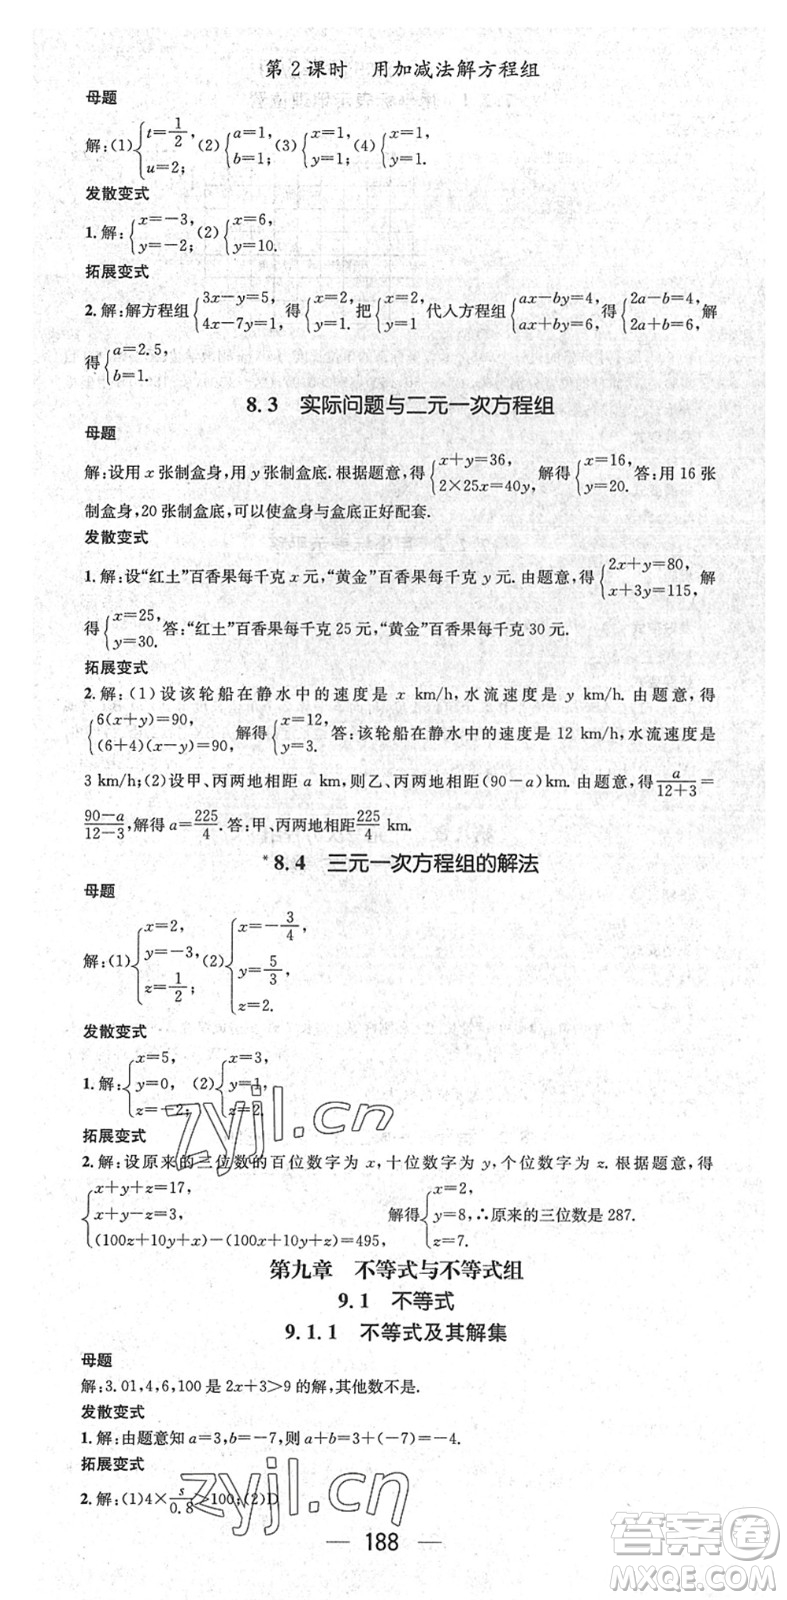 第2课时 用加减法解方程组
母题
解:(1){t=1/2, u=2; (2){a=1, b=1; (3){x=1, y=1; (4){x=1, y=1.
发散变式
1.解:{x=-3, y=-2; (2){x=6, y=10.
拓展变式
2.解:解方程组{3x-y=5, 4x-7y=1; 得{x=2, y=1. 把{x=2, y=1 代人方程组{ax-by=4, ax+by=6, 得{2a-b=4, 2a+b=6, 解
得{a=2.5, b=1.
8.3 实际问题与二元一次方程组
母题
解:设用 x 张制盒身,用 y 张制盒底.根据题意,得{x+y=36, 2×25x=40y, 解得{x=16, y=20. 答:用 16 张
制盒身,20 张制盒底,可以使盒身与盒底正好配套.
发散变式
1.解:设“红土”百香果每千克 x 元,“黄金”百香果每千克 y 元.由题意,得{2x+y=80, x+3y=115, 解
得{x=25, y=30. 答:“红土”百香果每千克 25 元,“黄金”百香果每千克 30 元.
拓展变式
2.解:(1)设该轮船在静水中的速度是 x km/h,水流速度是 y km/h.由题意,得
{6(x+y)=90, (6+4)(x-y)=90, 解得{x=12, y=3. 答:该轮船在静水中的速度是 12 km/h,水流速度是
3 km/h;(2)设甲、丙两地相距 a km,则乙、丙两地相距(90-a)km.由题意,得a/(12+3)=
(90-a)/(12-3),解得 a=225/4.答:甲、丙两地相距225/4 km.
*8.4 三元一次方程组的解法
母题
解:(1){x=2, y=-3, z=1/2; (2){x=-3/4, y=5/3, z=2.
发散变式
1.解:{x=5, y=0, z=-2; (2){x=3, y=1, z=2.
拓展变式
2.解:设原来的三位数的百位数字为 x,十位数字为 y,个位数字为 z.根据题意,得
{x+y+z=17, x+y-z=3, (100z+10y+x)-(100x+10y+z)=495, 解得{x=2, y=8, z=7. ∴原来的三位数是 287.
第九章 不等式与不等式组
9.1 不等式
9.1.1 不等式及其解集
母题
解:3.01,4,6,100 是 2x+3>9 的解,其他数不是.
发散变式
1.解:由题意知 a=3,b=-7,则 a+b=3+(-7)=-4.
拓展变式
2.解:(1)4×s/0.8>100;(2)D
188
zyjl.cn
zyjl.cn
答案圈